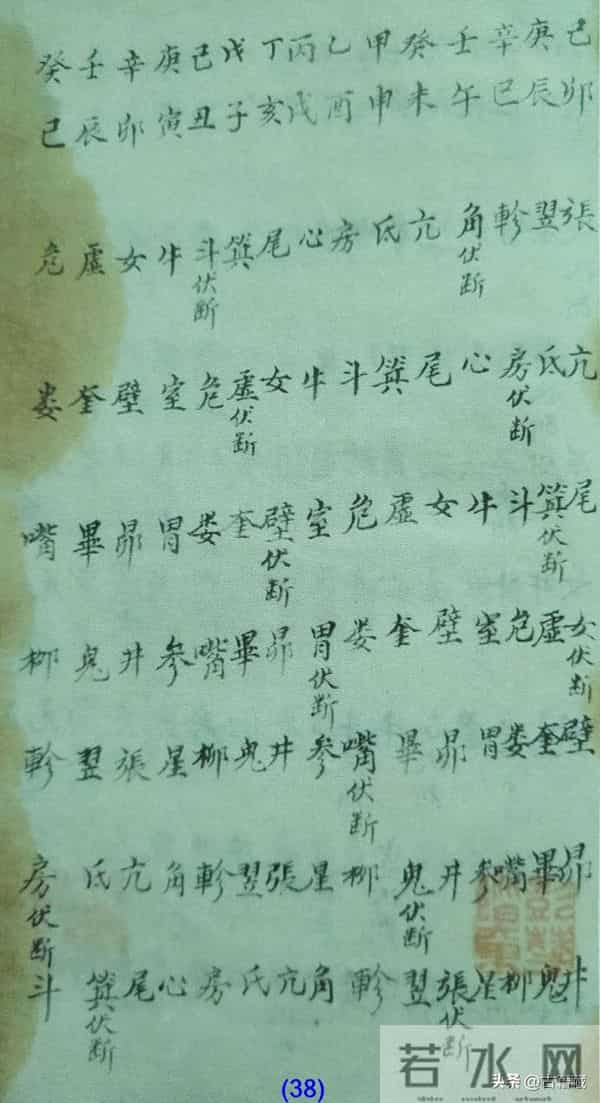 己卯張亢尾女伏断壁昴井
庚辰翌氐箕伏断虛奎畢鬼
辛巳軫房伏断斗危娄嘴柳
壬午角伏断心牛室胃参星
癸未亢尾女壁昴井張伏断
甲申氐箕虛奎畢鬼伏断翌
乙酉房斗危娄嘴伏断柳軫
丙戌心牛室胃伏断参星角
丁亥尾女壁伏断昴井張亢
戊子箕虛伏断奎畢鬼翌氐
己丑斗伏断危娄嘴柳軫房
庚寅牛室胃参星角心
辛卯女壁昴井張亢尾
壬辰虛奎畢鬼翌氐箕伏断
癸巳危娄嘴柳軫房伏断斗
(38)
若水网
头条 @古籍藏